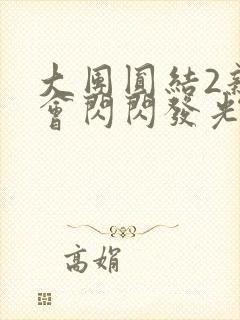 大團圓結2新
會閃閃發光
高娟